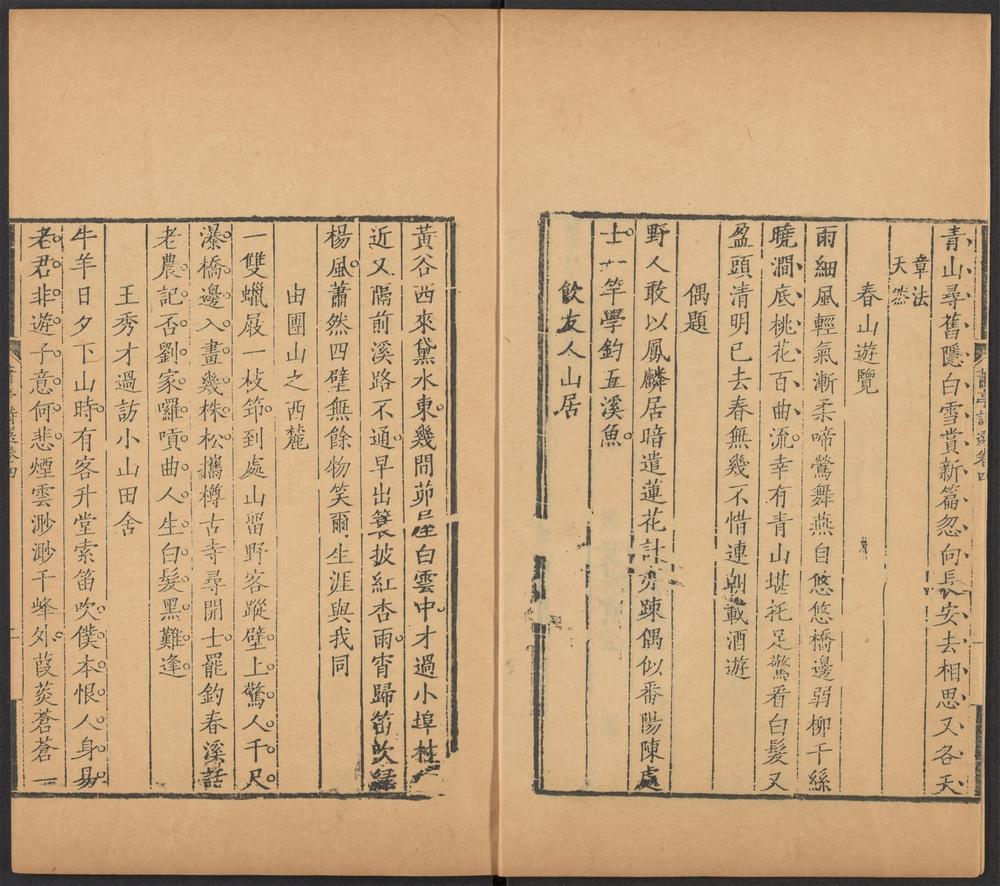 青山尋舊隱白雪賞新篇忽向長安去相思又各天
章法
天然
春山遊覽
雨細風輕氣漸柔啼鶯舞燕自悠悠橋邊弱柳千絲
曉澗底桃花百曲流幸有青山堪托足驚看白髮又
盈頭清明已去春無幾不惜連朝載酒遊
偶題
野人敢以鳳麟居暗遣蓮花計亦踈偶似番陽陳處
士一竿學釣五溪魚
飲友人山居
黃谷西來黛水東幾間茆屋白雲中才過小埠村
近又隔前溪路不通早出簑披紅杏雨宵歸笛吹綠
楊風蕭然四壁無餘物笑爾生涯與我同
由團山之西麓
一雙蠟屐一枝筇到處山留野客蹤壁上驚人千尺
瀑橋邊入畫幾株松攜樽古寺尋開士罷釣春溪話
老農記否劉家囉嗊曲人生白髮黑難逢
王秀才過訪小山田舍
牛羊日夕下山時有客升堂索笛吹僕本恨人身易
老君非遊子意何悲煙雲渺渺千峰外葭菼蒼蒼一